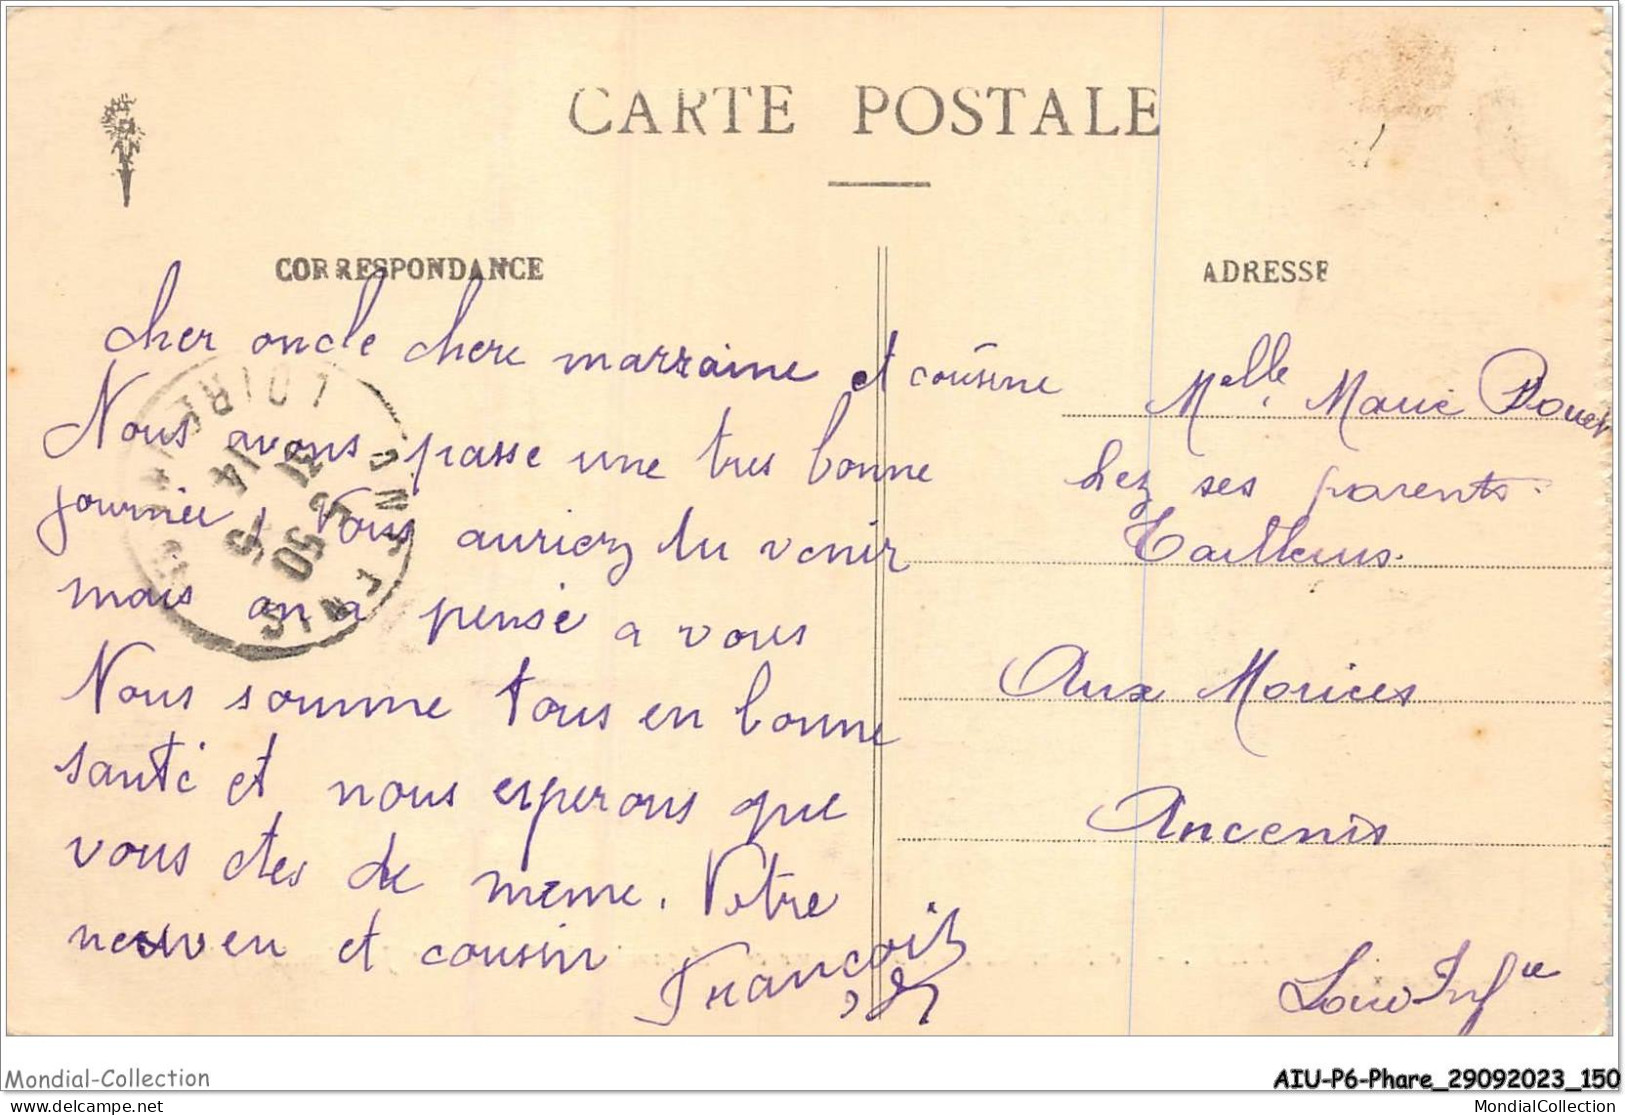 CARTE POSTALE
CORRESPONDANCE
ADRESSE
cher oncle chere marraine et cousine
Nous avons passe une tres bonne
journée, Vous auriez du venir
mais on a pense a vous
Nous somme tous en bonne
santé et nous esperons que
vous etes de meme. Votre
neuveu et cousin
François
Melle Marie Douet
chez ses parents
Tailleurs.
Aux Morices
Ancenis
Loire Infre
LOIRE INFRE
31
5
14
Mondial-Collection
AIU-P6-Phare_29092023_150
www.delcampe.net
MondialCollection